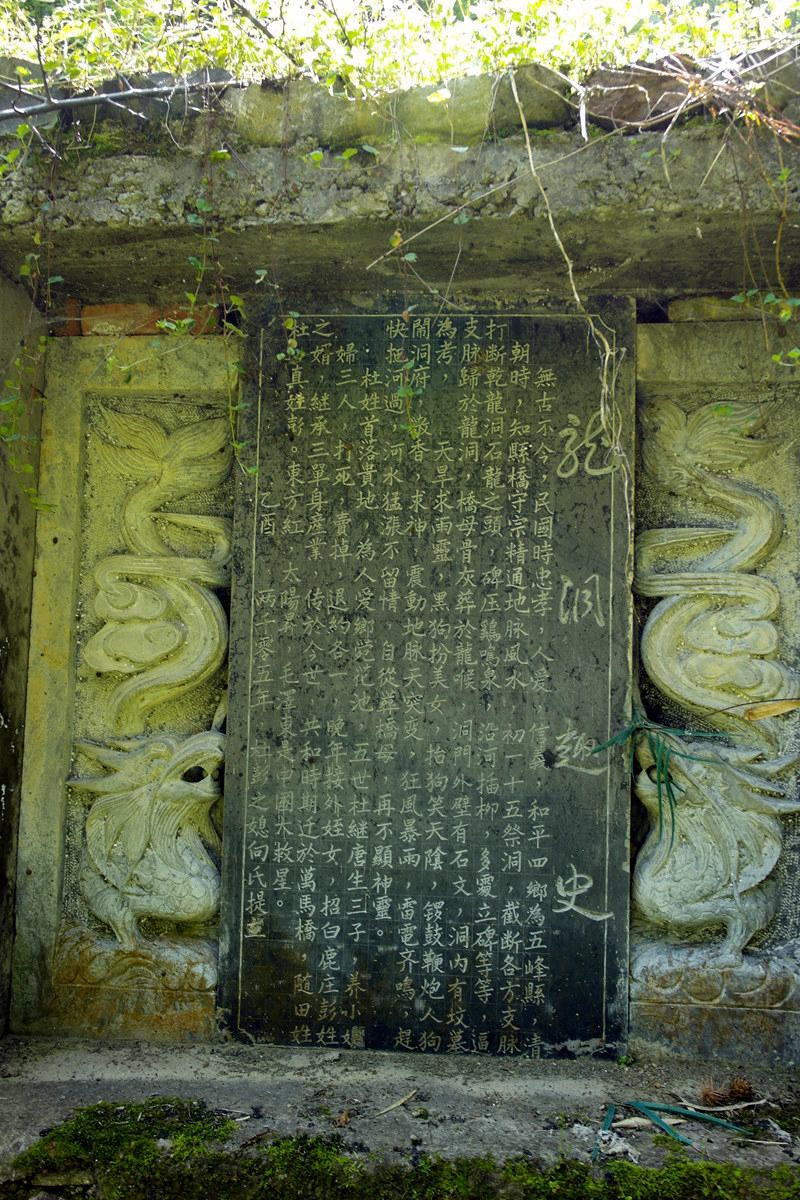 龙洞趣史
無古不今，民國時忠孝，人愛，信義，和平四鄉為五峰縣，清
朝時，知縣橋守宗精通地脉風水，初一十五祭洞，截断各方支脉
打断乾龍洞石龍之頭，碑压鷄鳴泉，沿河插柳，多愛立碑等等，逼
支脉歸於龍洞，橋母骨灰葬於龍喉，洞門外壁有石文，洞內有坟墓
為考，天旱求雨靈，黑狗扮美女，抬狗笑天陰，鑼鼓鞭炮人狗
閙洞府，燒香，求神，震動地脉天突变，狂風暴雨，雷電齐鳴，趕
快把河過，河水猛漲不留情，自從葬橋母，再不顯神靈。
杜姓首落貴地，為人愛鄉 花池，五世杜継唐生三子，养小
婦三人，打死，賣掉，退約各一，晚年接外姪女，招白鹿庄彭姓
之婿，継承三單身産業，传於今世，共和時期迁於萬馬橋，隨田姓
杜，真姓彭。東方紅，太陽昇，毛澤東是中國大救星。
乙酉 两千零五年 杜彭之媳向氏提立